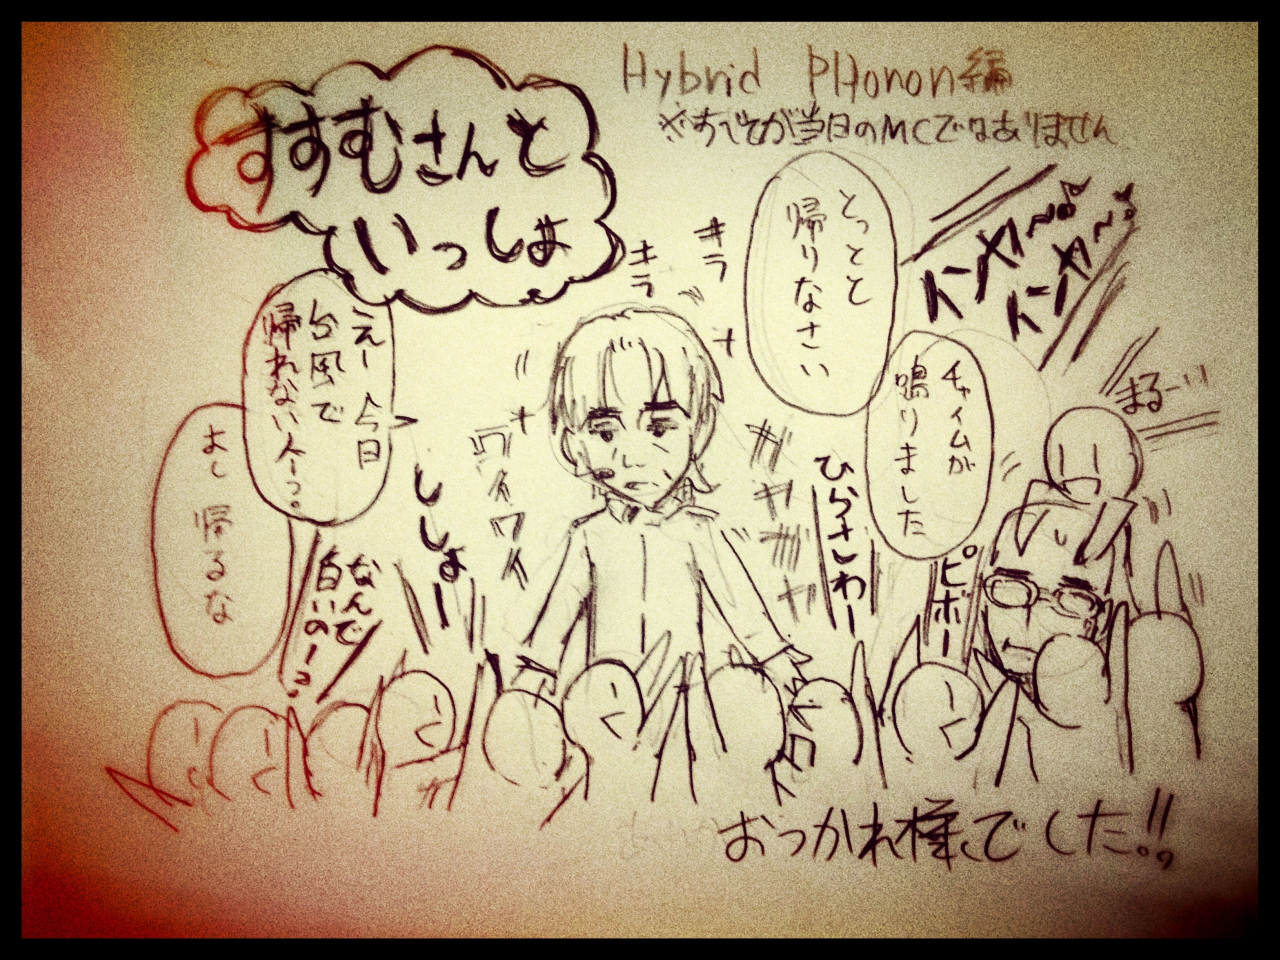 Hybrid PHonon編
※すべてが当日のMCではありません
すすむさんと
いっしょ
とっとと
帰りなさい
キラ
キラ
ニャ〜♪
ニャ〜♪
チャイムが
鳴りました
まるー
えー 今日
台風で
帰れない人ー?
よし 帰るな
ししょー
ワイワイ
ひらさわー
ピポー
なんで
白いのー?
おつかれ様でした!!